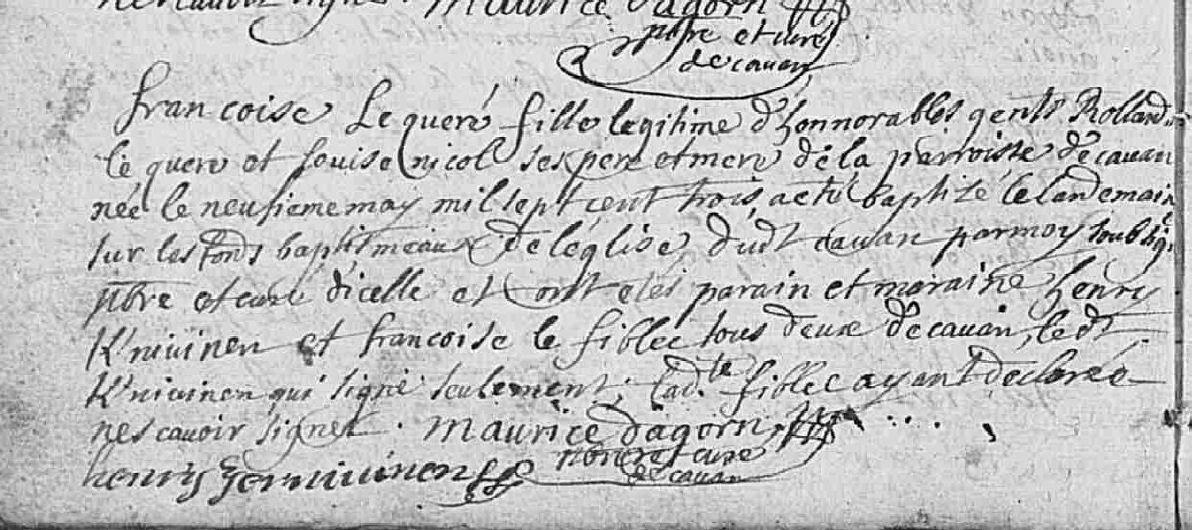 Maurice Dagorn
pbre et curé
de cauan
francoise Le queré fille legitime d'honnorables gents Rolland
le quere et Louise nicol ses pere et mere de la parroisse de cauan
née le neufieme may mil sept cent trois acté baptizé le landemain
sur les fonds baptismeaux de leglise dudt cauan par moy soubsigé
pbre et curé dicelle et ont etés parain et maraine henry
K'niuinen et francoise le fiblec tous deux de cauan, le dt
K'niuinen qui signe seulement, lad.te fiblec ayant declaree
nescavoir signer. Maurice dagorn
henry Kerniuinen pbre et cure
de cauan